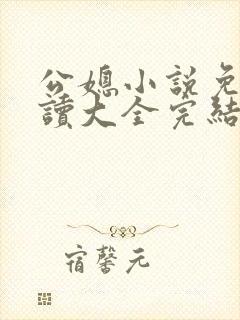 公媳小說免
讀大全完結
宿馨元